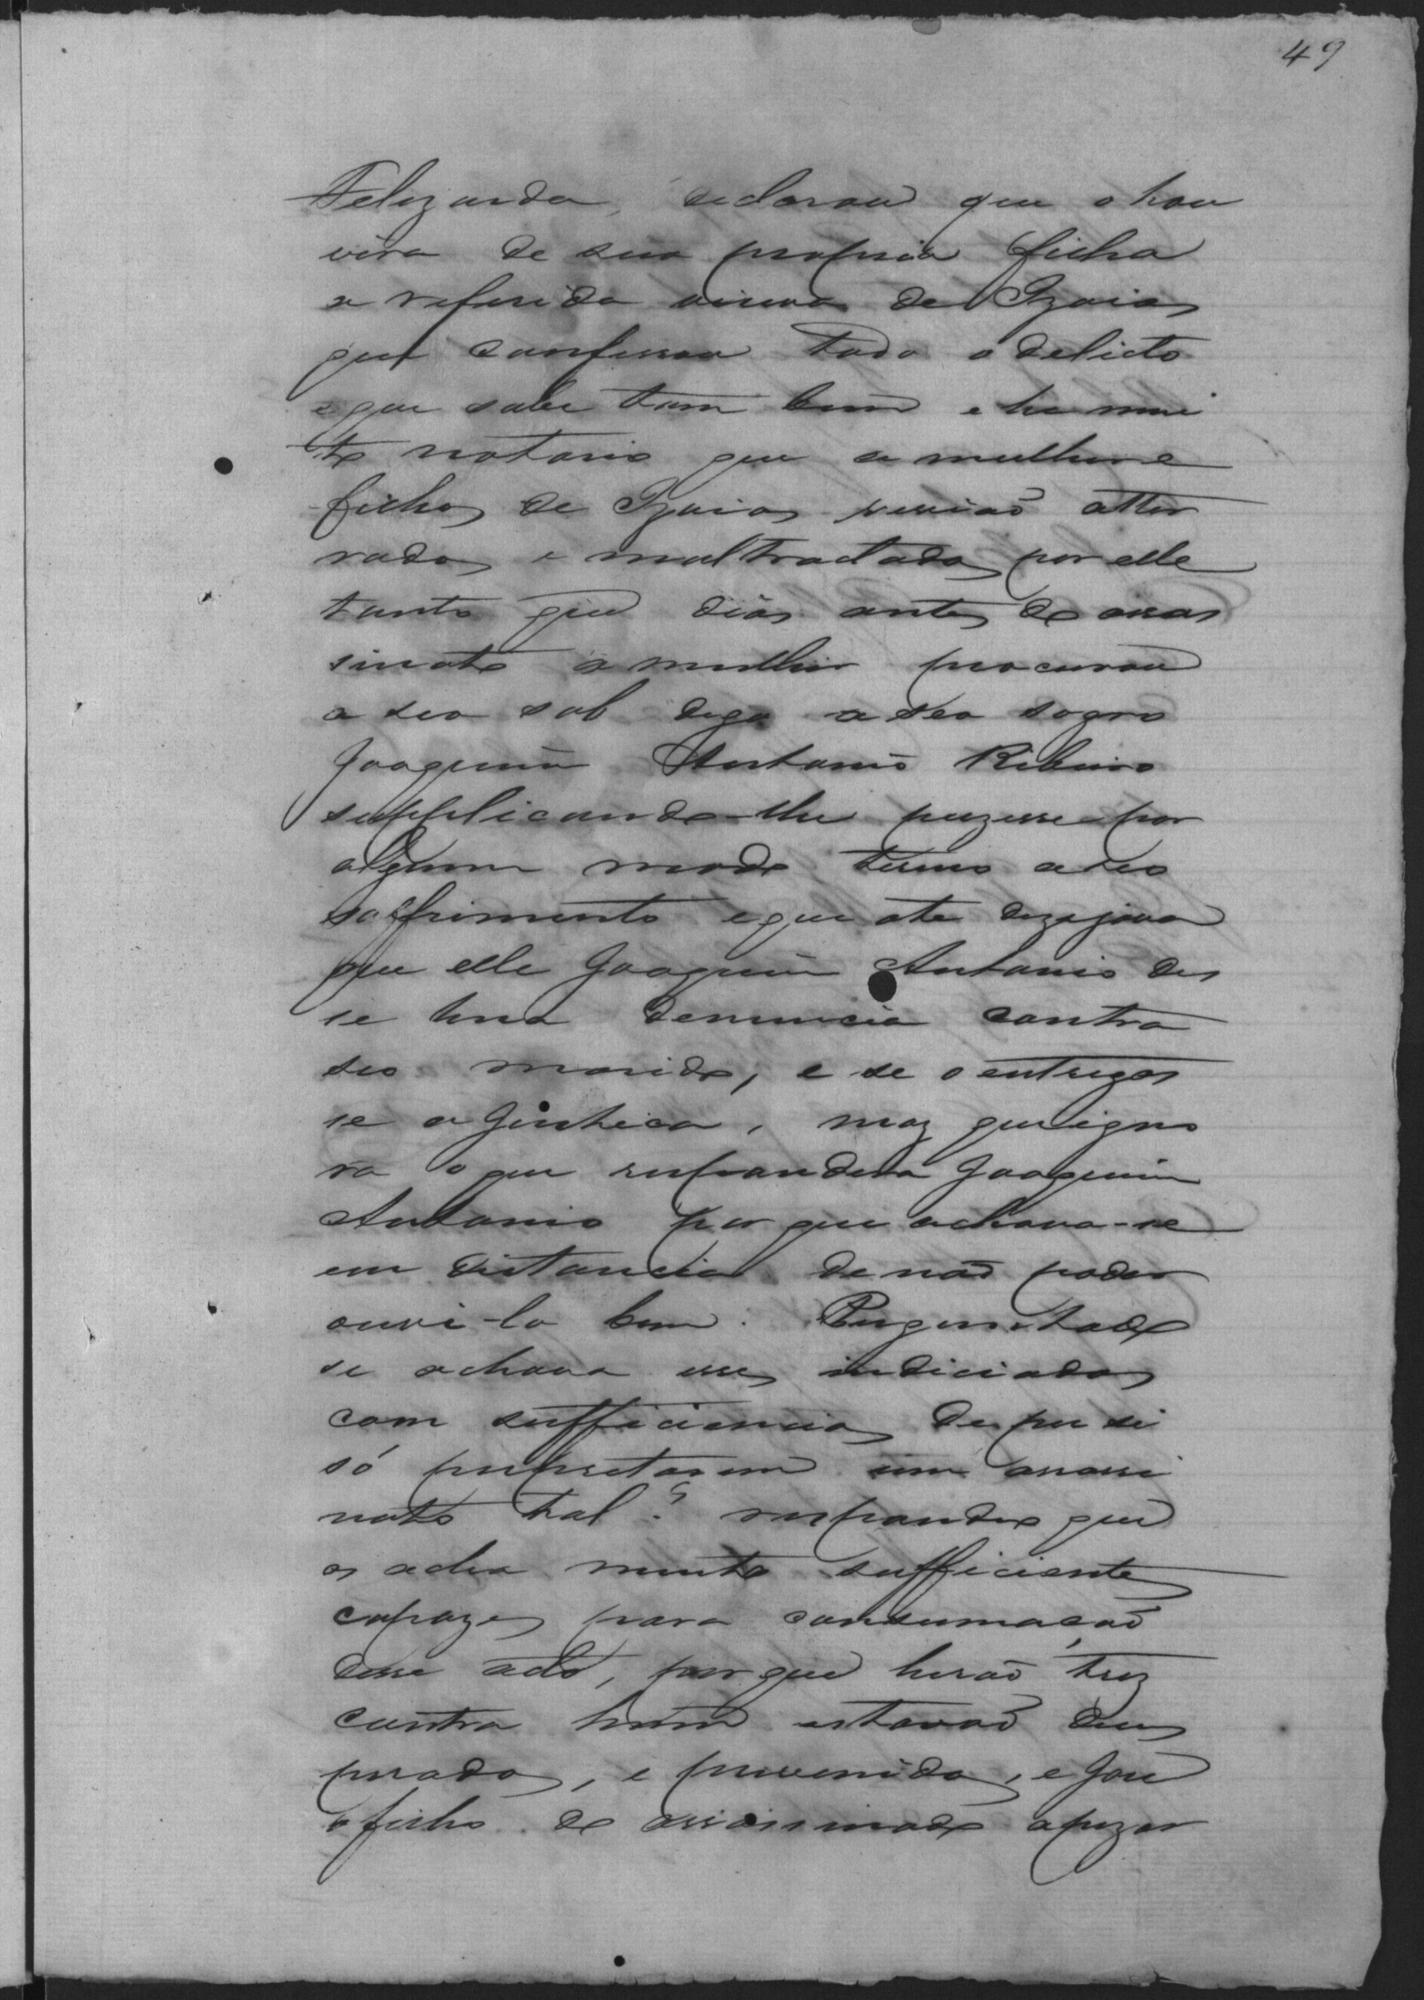 49
Felizarda, declarou que o hou
vira de sua propria filha
a referida viuva de Izaias
que confessou todo o delicto
e que sabe tam bem e he mui
to notorio que a mulher e
filhos de Izaias vivião atter
rados e maltractados por elle
tanto que dias antes do assas
sinato a mulher procurou
a seo sob digo a seo sogro
Joaquim Antonio Ribeiro
supplicando-lhe puzesse por
algum modo termo a seo
soffrimento e que ate dezejava
que elle Joaquim Antonio des
se huma denuncia contra
seo marido, e se o entregas
se a Justica, maz que igno
ra o que respondera Joaquim
Antonio por que achava-se
em distancia de não poder
ouvi-lo bem. Perguntado
se achava esses indiciados
com sufficiencia de per si
só perpretarem um assassi
nato tal? respondeo que
os acha muito sufficientes
capazes para consumacão
desse acto, por que herão trez
contra hum estavão deus
purados, e prevenidos, e José
o filho do assassinado apezar